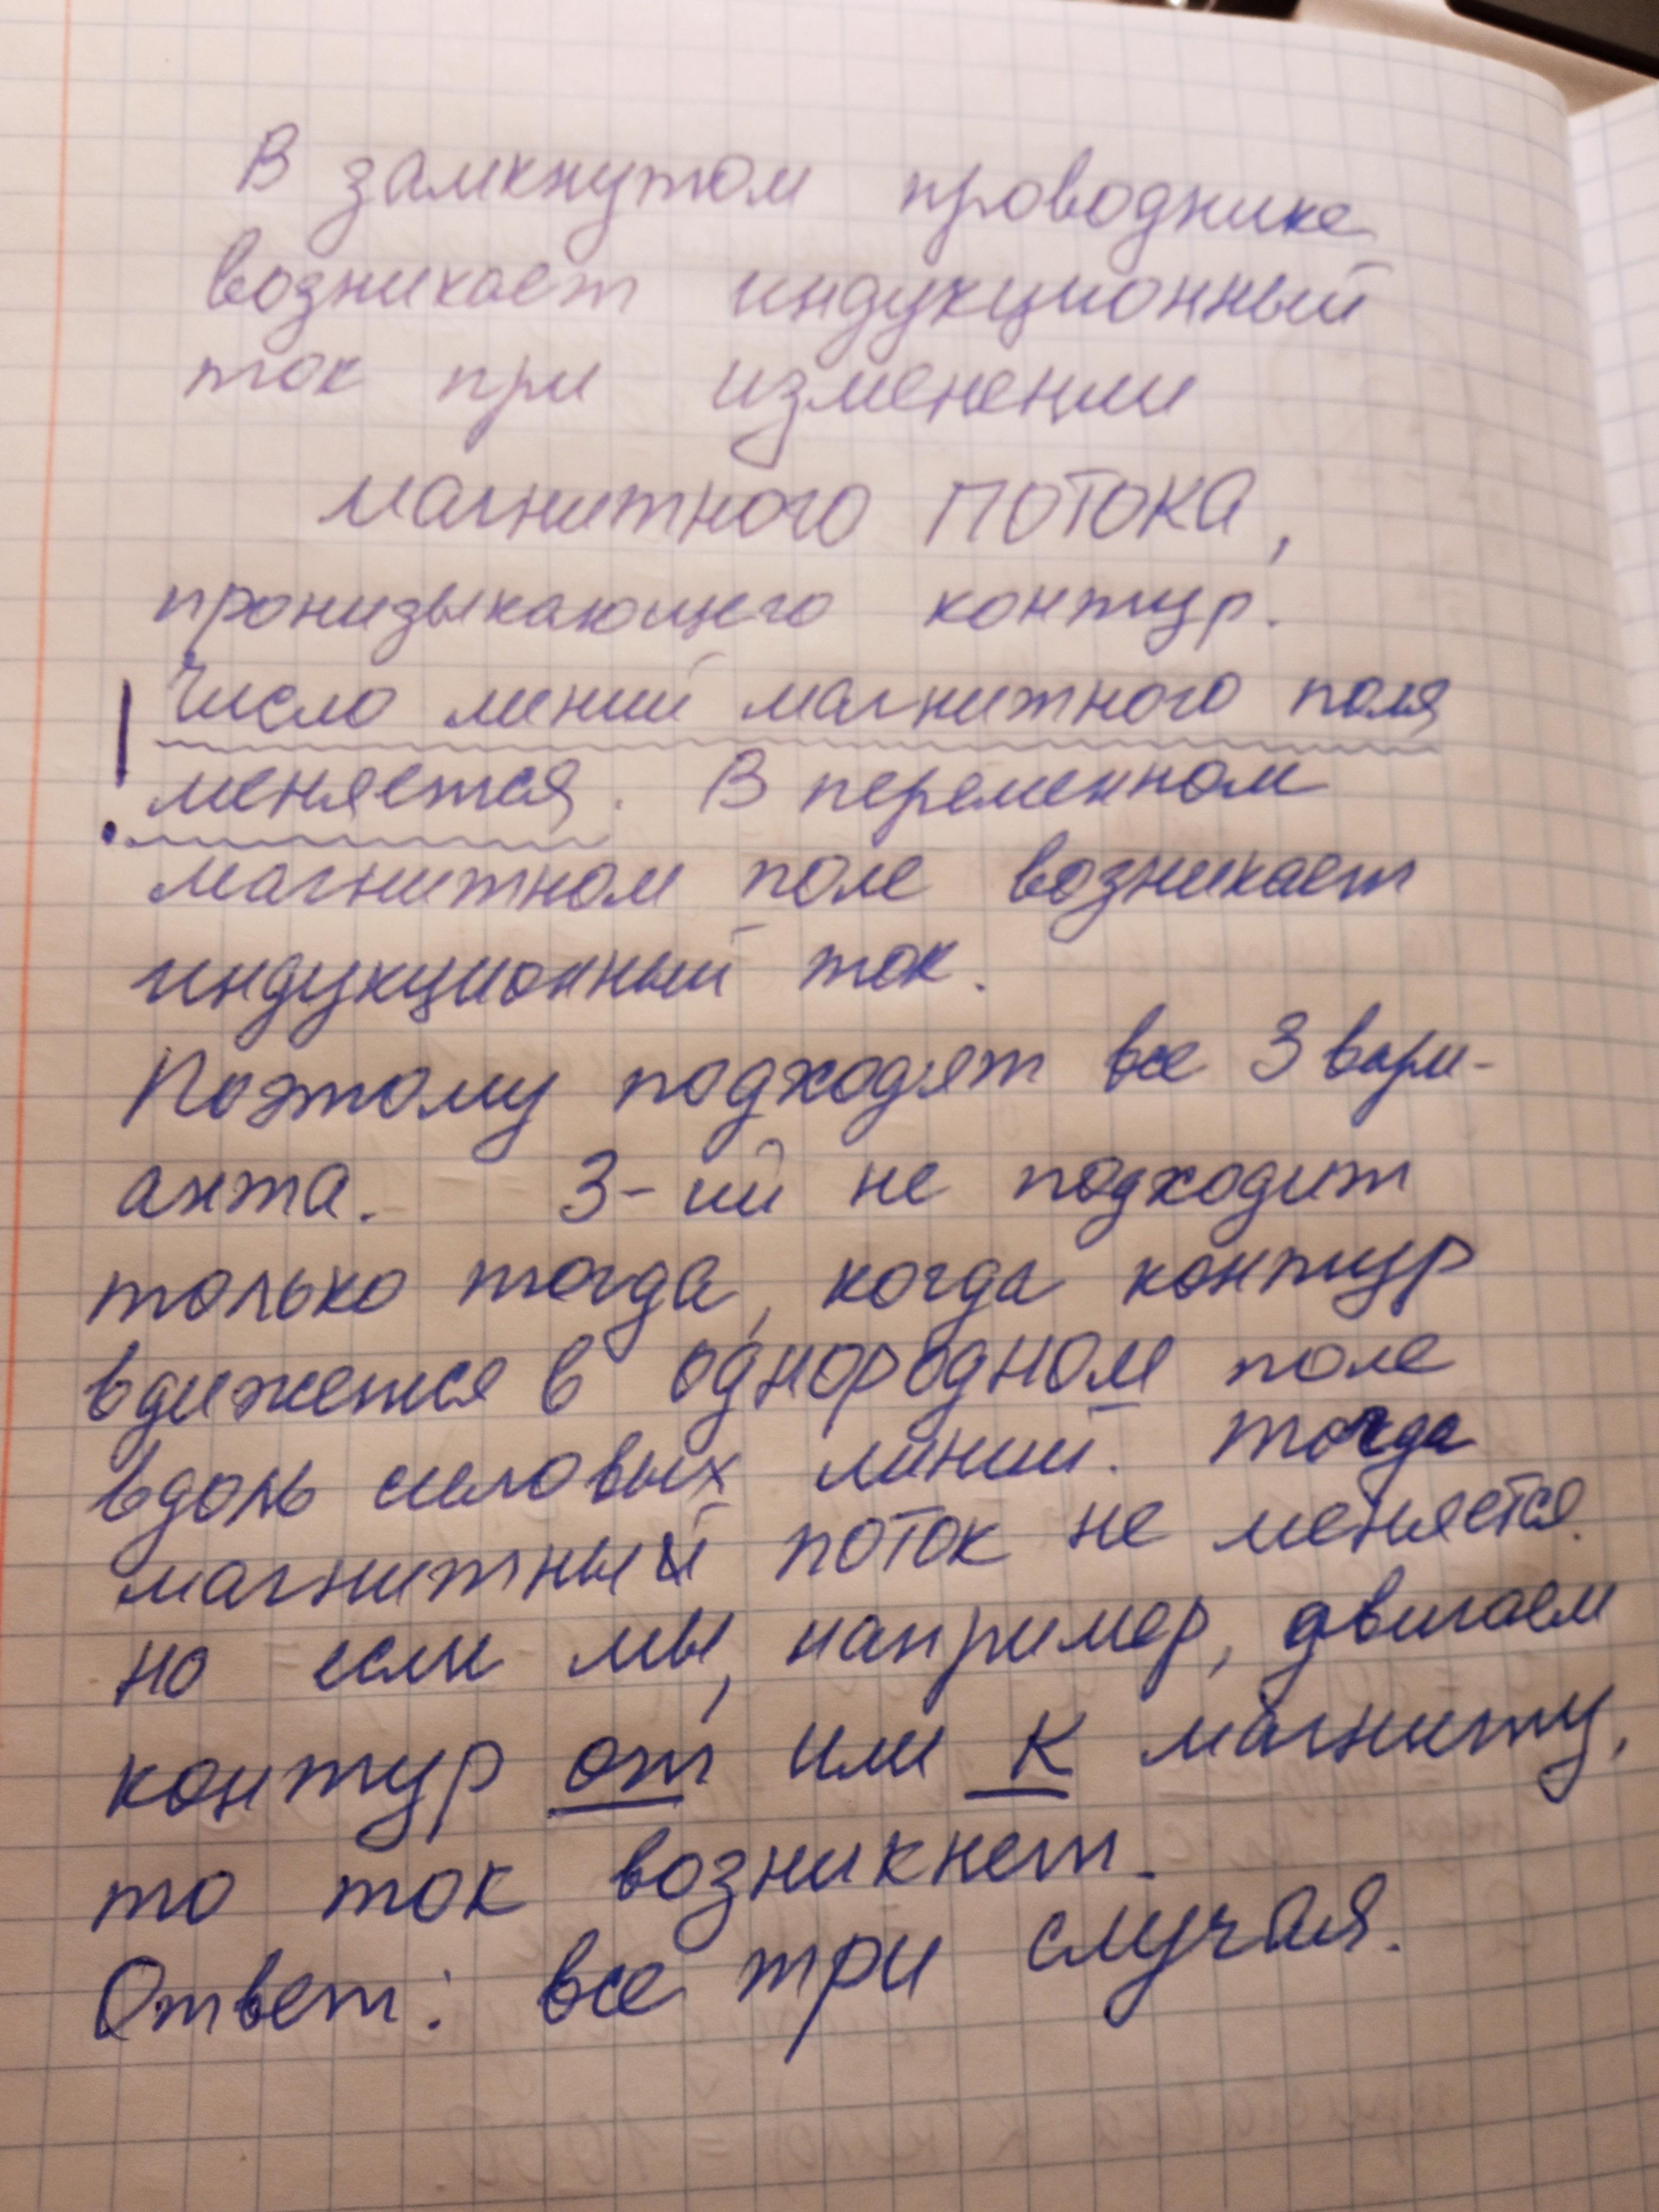 В замкнутом проводнике
возникает индукционный
ток при изменении
магнитного ПОТОКА,
пронизыкающего контур.
! Число линий магнитного поля
меняется. В переменном
магнитном поле возникает
индукционный ток.
Поэтому подходят все 3 вари-
анта. 3-ий не подходит
только тогда, когда контур
вдижется в однородном поле
вдоль силовых линий. тогда
магнитный поток не меняется.
но если мы, например, двигаем
контур от или к магниту,
то ток возникнет.
Ответ: все три случая.